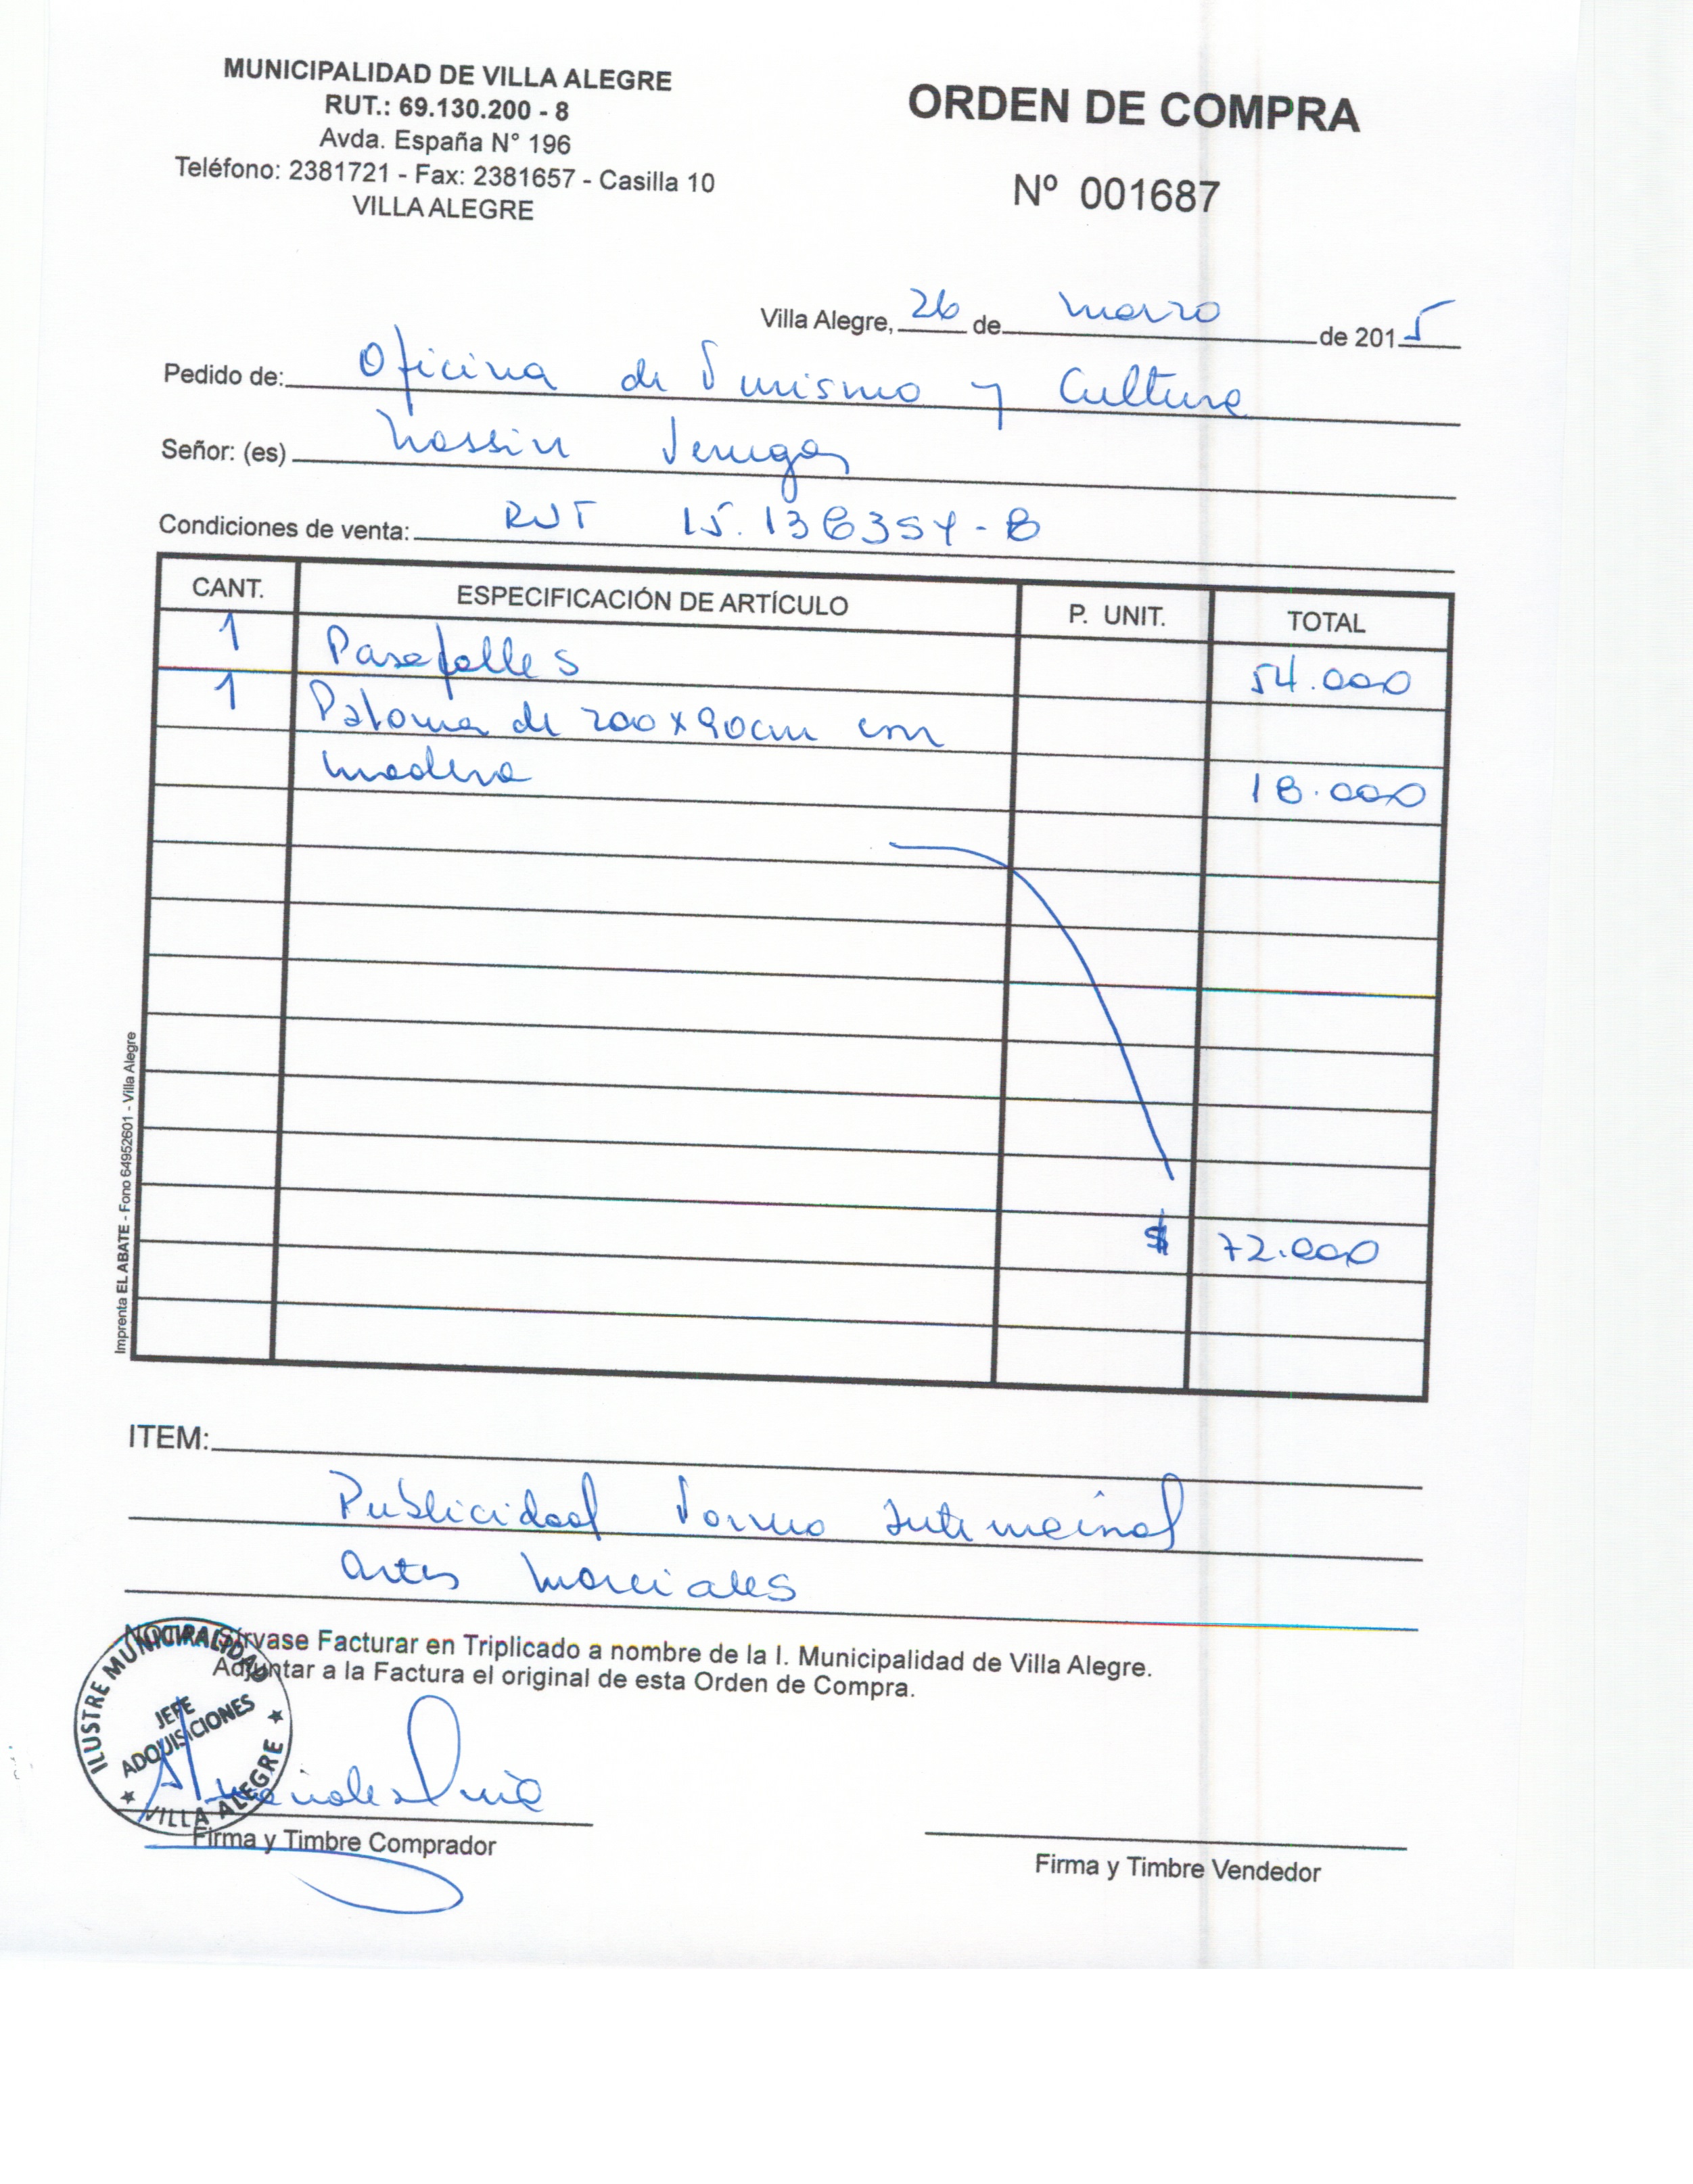 MUNICIPALIDAD DE VILLA ALEGRE
RUT.: 69.130.200 - 8
Avda. España N° 196
Teléfono: 2381721 - Fax: 2381657 - Casilla 10
VILLA ALEGRE
ORDEN DE COMPRA
Nº 001687
Villa Alegre, 26 de marzo de 2015
Pedido de: Oficina de Turismo y Cultura
Señor: (es)
Condiciones de venta: RUT
CANT. ESPECIFICACIÓN DE ARTÍCULO P. UNIT. TOTAL
1 Pasacalles 54.000
1 Paloma de 200x90cm con
madera 18.000
$ 72.000
Imprenta EL ABATE - Fono 64952601 - Villa Alegre
ITEM:
Publicidad Torneo
Artes Marciales
Sírvase Facturar en Triplicado a nombre de la I. Municipalidad de Villa Alegre.
Adjuntar a la Factura el original de esta Orden de Compra.
ILUSTRE MUNICIPALIDAD
JEFE
ADQUISICIONES
VILLA ALEGRE
Firma y Timbre Comprador
Firma y Timbre Vendedor